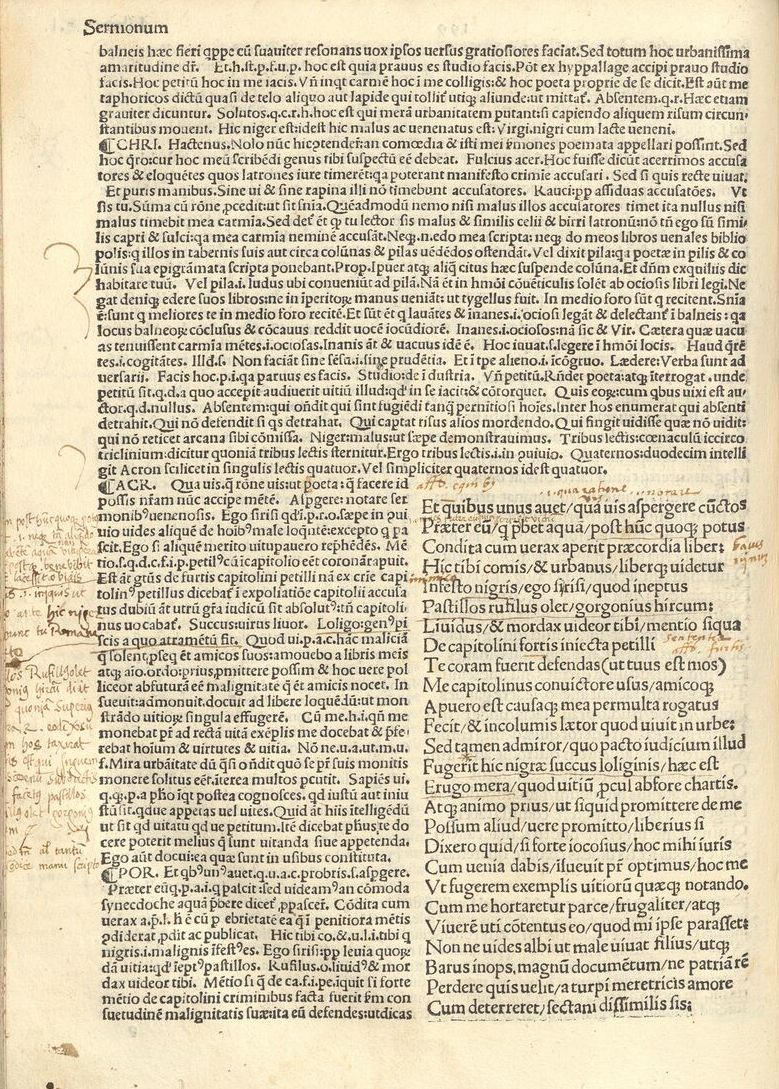 Sermonum
balneis hæc fieri qppe cũ suauiter resonans uox ipsos uersus gratiosiores faciat. Sed totum hoc urbanissima
amaritudine dr̃. Et.h.st.p.f.u.p. hoc est quia prauus es studio facis. Põt ex hyppallage accipi prauo studio
facis. Hoc petitũ hoc in me iacis. Vñ inqt carmẽ hoc ĩ me colligis: & hoc poeta proprie de se dicit. Est aũt me
taphoricos dictũ quasi de telo aliquo aut lapide qui tollit̃ utiq; aliunde: ut mittat̃. Absentem.q.r. Hæc etiam
grauiter dicuntur. Solutos.q.c.r.h. hoc est qui merã urbanitatem putant: si capiendo aliquem risum circun/
stantibus mouent. Hic niger est: idest hic malus ac uenenatus est: Virgi. nigri cum lacte ueneni.
¶CHRI. Hactenus. Nolo nũc hic ostender: an comœdia & isti mei ŝmones poemata appellari possint. Sed
hoc q̃ro: cur hoc meũ scribẽdi genus tibi suspectũ eẽ debeat. Fulcius acer. Hoc fuisse dicũt acerrimos accusa
tores & eloquẽtes quos latrones iure timerẽt: qa poterant manifesto crimie accusari. Sed si quis recte uiuat.
Et puris manibus. Sine ui & sine rapina illi nõ timebunt accusatores. Rauci: pp assiduas accusatões. Vt
sis tu. Sũma cũ rõne pcedit: ut sit sñia. Quẽadmodũ nemo nisi malus illos accusatores timet ita nullus nisi
malus timebit mea carmĩa. Sed det̃ ẽt qp tu lector sis malus & similis celii & birri latronũ: nõ tñ ego sũ simi/
lis capri & sulci: qa mea carmĩa neminẽ accusãt. Neq;.n.edo mea scripta: neq; do meos libros uenales biblio
polis: q illos in tabernis suis aut circa colũnas & pilas uẽdẽdos ostendãt. Vel dixit pila: qa poetæ in pilis & co
lũnis sua epigrãmata scripta ponebant. Prop. I puer atq; aliq̃ citus hæc suspende colũna. Et dñm exquiliis dic
habitare tuũ. Vel pila.i. ludus ubi conueniũt ad pilã. Nã ẽt in hmõi cõuẽticulis solẽt ab ociosis libri legi. Ne
gat deniq; edere suos libros: ne in ĩperitoȝ manus ueniãt: ut tygellus fuit. In medio foro sũt q recitent. Snĩa
ẽ: sunt q meliores te in medio foro recitẽ. Et sũt ẽt q lauãtes & inanes.i. ociosi legãt & delectant̃ ĩ balneis: qa
locus balneoȝ cõclusus & cõcauus reddit uocẽ iocũdiorẽ. Inanes.i. ociosos: nã sic & Vir. Cætera quæ uacu
as tenuissent carmĩa mẽtes.i. ociosas. Inanis ãt & uacuus idẽ ẽ. Hoc iuuat.s. legere ĩ hmõi locis. Haud q̃rẽ
tes.i. cogitãtes. Illd.s. Non faciãt sine sẽsa.i. sine prudẽtia. Et ĩ tpe alieno.i. ĩcõgruo. Lædere: Verba sunt ad
uersarii. Facis hoc.p.i. qa paruus es facis. Studio: de ĩdustria. Vñ petitũ. Rñdet poeta: atq; ĩterrogat. unde
petitũ sit.q.d. a quo accepit audiuerit uitiũ illud: qd̃ in se iacit: & cõtorquet. Quis eoȝ: cum qbus uixi est au/
ctor.q.d. nullus. Absentem: qui oñdit qui sint fugiẽdi tanq̃ pernitiosi hoĩes. Inter hos enumerat qui absenti
detrahit. Qui nõ defendit si qs detrahat. Qui captat risus alios mordendo. Qui fingit uidisse quæ nõ uidit:
qui nõ reticet arcana sibi cõmissa. Niger: malus: ut sæpe demonstrauimus. Tribus lectis: cœnaculũ iccirco
triclinium: dicitur quoniã tribus lectis sternitur. Ergo tribus lectis.i. in cõuiuio. Quaternos: duodecim intelli
git Acron scilicet in singulis lectis quatuor. Vel simpliciter quaternos idest quatuor.
¶ACR. Qua uis.q̃ rõne uis: ut poeta: q̃ facere id
possis nr̃am nũc accipe mẽtẽ. Aspgere: notare ser
monibꝰ uenenosis. Ego sirisi qd̃.i.p.r.o. sæpe in cõui
uio uides aliquẽ de hoibꝰ male loqntẽ: excepto q pa
scit. Ego si aliquẽ merito uitupauero rephẽdẽs. Mẽ
tio.s.q.d.c.f.i.p. petillꝰ cũ ĩ capitolio eẽt coronã rapuit.
Est ãt gñs de furtis capitolini petilli nã ex crie capi
tolinꝰ petillus dicebat̃ ĩ expoliatiõe capitolii accusa
tus dubiũ ãt utrũ gr̃a iudicũ sit absolutꝰ: tñ capitoli/
nus uocabat̃. Succus: uirus liuor. Loligo: genꝰ pi
scis a quo atramẽtũ fit. Quod ui.p.a.c. hac maliciã
q̃ solent, pseq ẽt amicos suos: amouebo a libris meis
atq; aĩo. ordo: prius, pmittere possim & hoc uere pol
liceor abfuturã eẽ malignitatẽ q̃ ẽt amicis nocet. In
sueuit: admonuit. docuit ad libere loquẽdũ: ut mon
strãdo uitioȝ singula effugerẽ. Cũ me.h.i. qñ me
monebat pr̃ ad rectã uitã exẽplis me docebat & p̃fe
rebat hoium & uirtutes & uitia. Nõ ne.u.a.ut.m.u.
f. Mira urbãitate dũ q̃si oñdit quõ se pr̃ suis monitis
monere solitus eẽt: ãterea multos pcutit. Sapiẽs ui.
q.q;.p.a pho ĩqt postea cognosces. qd iustũ aut iniu
stũ sit. qd ue appetas uel uites. Quid ãt hiis ĩtelligẽdũ
ut sit qd uitatu qd ue petitum. Itẽ dicebat phus: te do
cere poterit melius q̃ sunt uitanda siue appetenda.
Ego aũt docui: ea quæ sunt in usibus constituta.
¶POR. Et qbꝰ uñꝰ auet.q.u.a.c. probris.s. aspgere.
Præter eũ q.p.a.i. q pascit: sed uideam an cõmoda
synecdoche aquã p̃bere dicet̃, ppascer̃. Cõdita cum
uerax a.p.l. h ẽ cũ p ebrietatẽ ea q̃ ĩ penitiora mẽtis
cõdiderat, pdit ac publicat. Hic tibi co.&.u.l.i. tibi q
nigris.i. malignis ĩfestꝰ es. Ego sirisi: pp leuia quoȝ
dã uitia: qd̃ ĩeptꝰ pastillos. Rufilus.o. liuidꝰ & mor
dax uideor tibi. Mẽtio si q̃ de ca.f.i.pe. iquit si forte
mẽtio de capitolini criminibus facta fuerit ŝm con
suetudinẽ malignitatis suæ: ita eũ defendes: ut dicas
Et quibus unus auet/qua uis aspergere cũctos
Præter eũ/q p̃bet aquã/post hũc quoq; potus
Condita cum uerax aperit præcordia liber:
Hic tibi comis/& urbanus/liberq; uidetur
Infesto nigris/ego si risi/quod ineptus
Pastillos rufilus olet/gorgonius hircum:
Liuidus/& mordax uideor tibi/mentio siqua
De capitolini fortis iniecta petilli
Te coram fuerit defendas (ut tuus est mos)
Me capitolinus conuictore usus/amicoq;
A puero est causaq; mea permulta rogatus
Fecit/& incolumis lætor quod uiuit in urbe:
Sed tamen admiror/quo pacto iudicium illud
Fugerit hic nigræ succus loliginis/hæc est
Erugo mera/quod uitiũ ꝓcul abfore chartis.
Atq; animo prius/ut siquid promittere de me
Possum aliud/uere promitto/liberius si
Dixero quid/si forte iocosius/hoc mihi iuris
Cum uenia dabis/ĩsueuit pr̃ optimus/hoc me
Vt fugerem exemplis uitiorũ quæq; notando.
Cum me hortaretur parce/frugaliter/atq;
Viuerẽ uti cõtentus eo/quod mi ipse parasset:
Non ne uides albi ut male uiuat filius/utq;
Barus inops, magnũ documẽtum/ne patriã rẽ
Perdere quis uelit/a turpi meretricis amore
Cum deterreret/sectani dissimilis sis: